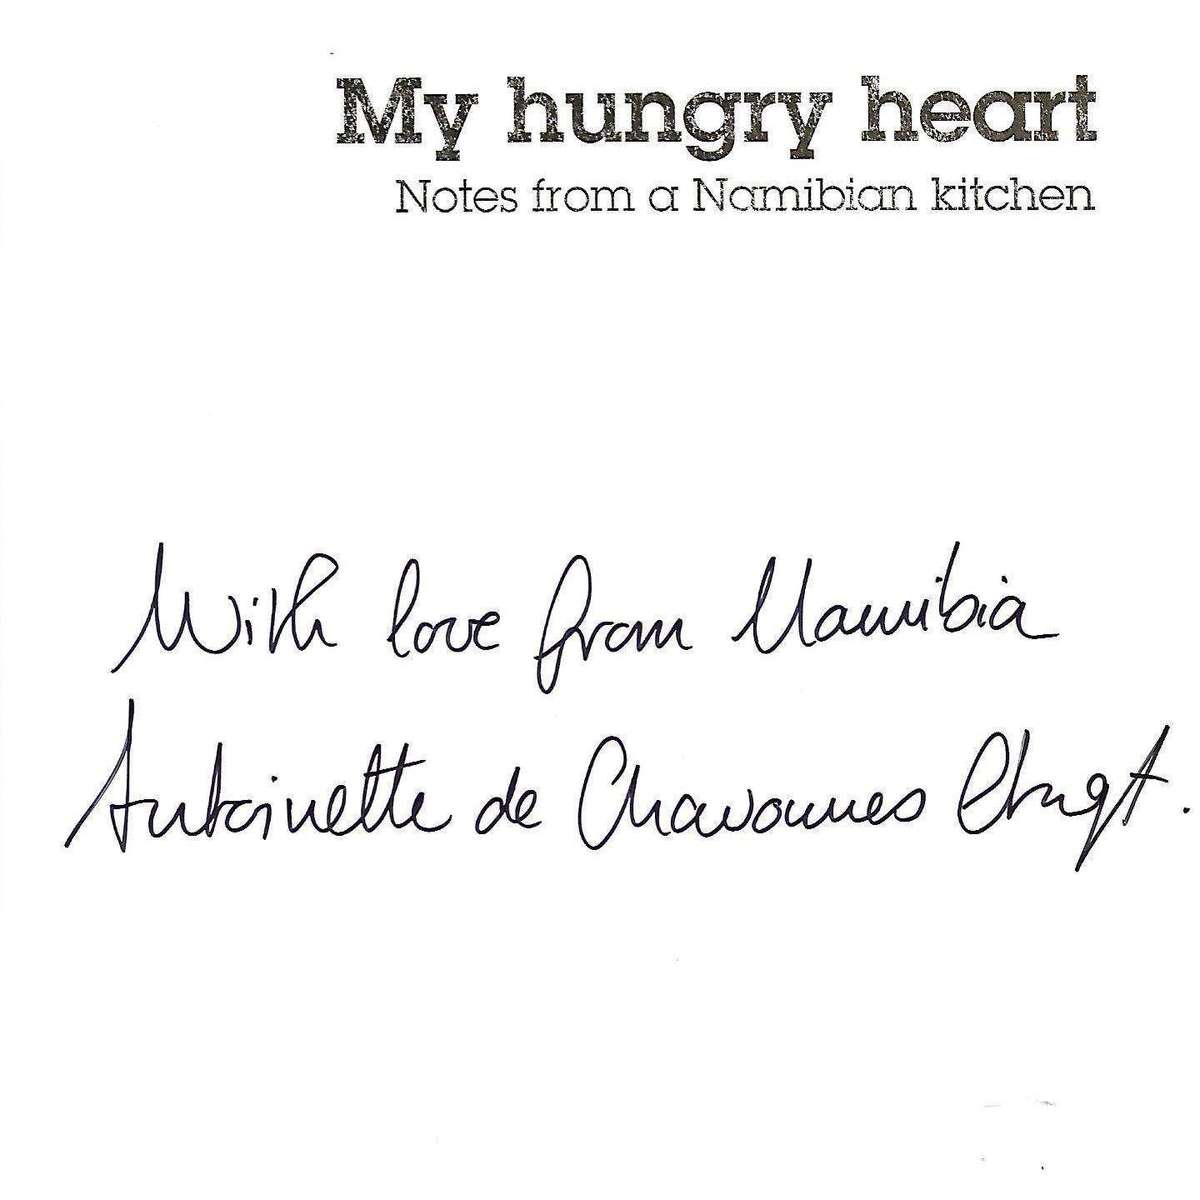 My hungry heart
Notes from a Namibian kitchen
With love from Namibia
Antoinette de Chavonnes Vrugt.